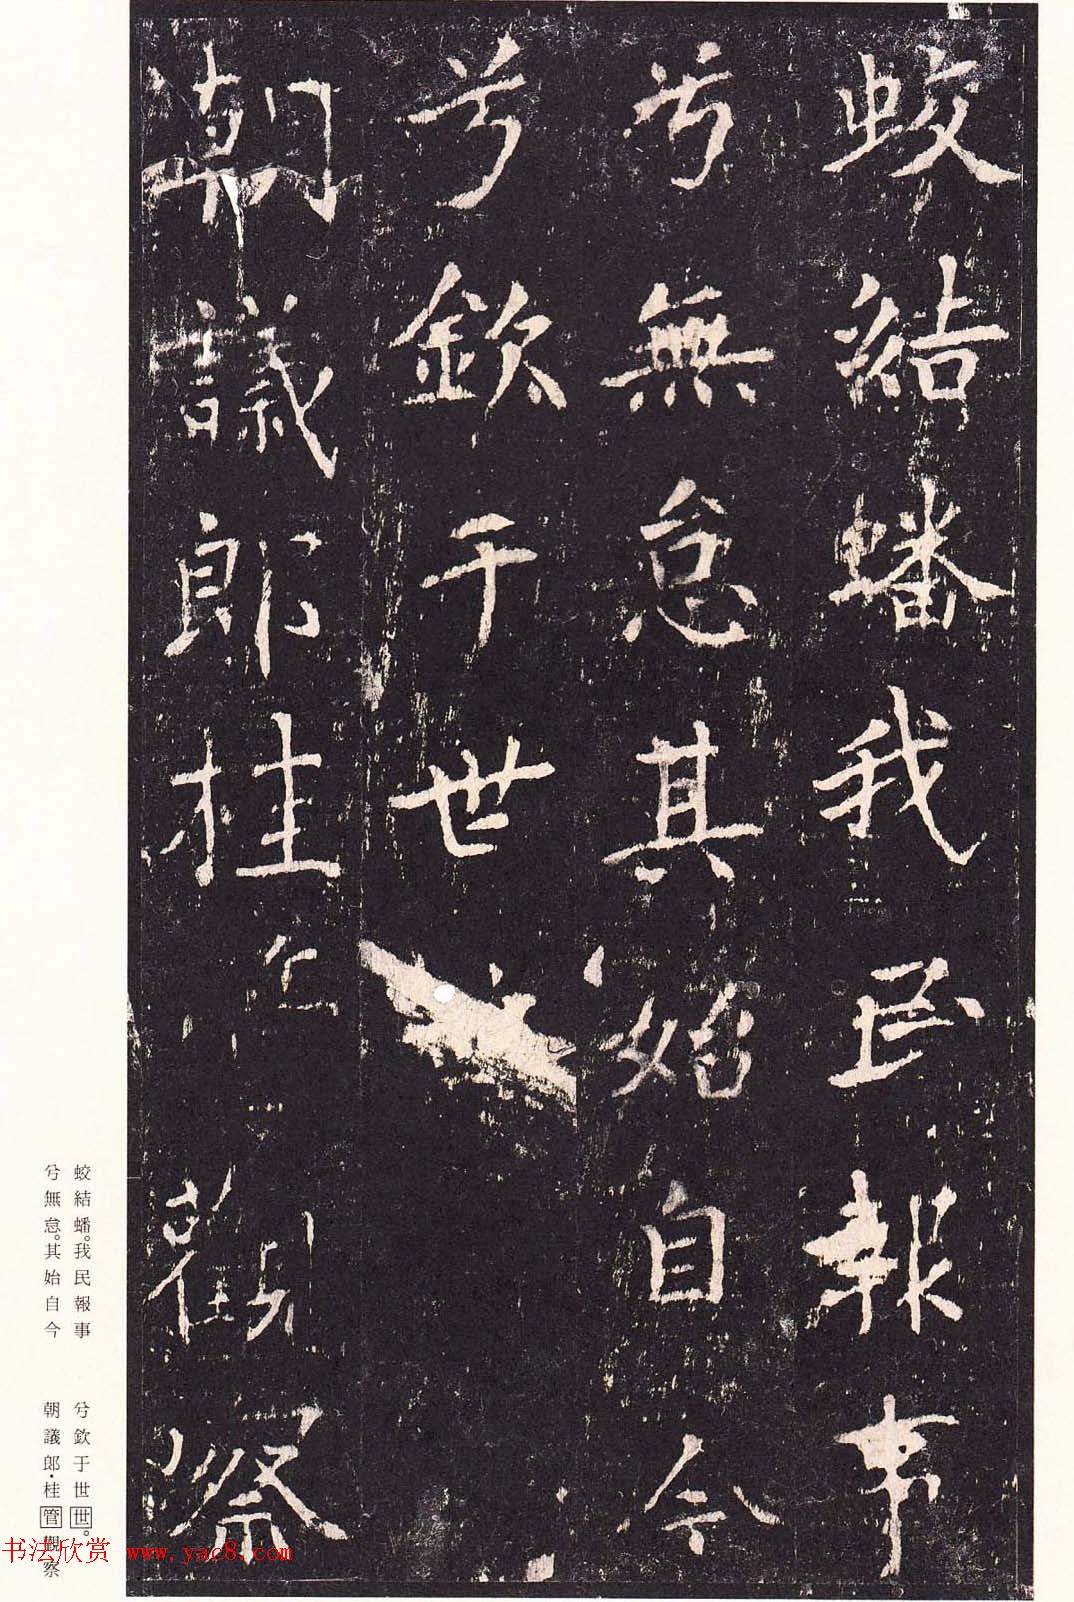 蛟結蟠我民報事
兮無怠其始自今
兮欽于世
朝議郎桂 觀察
蛟結蟠。我民報事
兮無怠。其始自今
兮欽于世世。
朝議郎・桂管觀察
书法欣赏 www.yac8.com